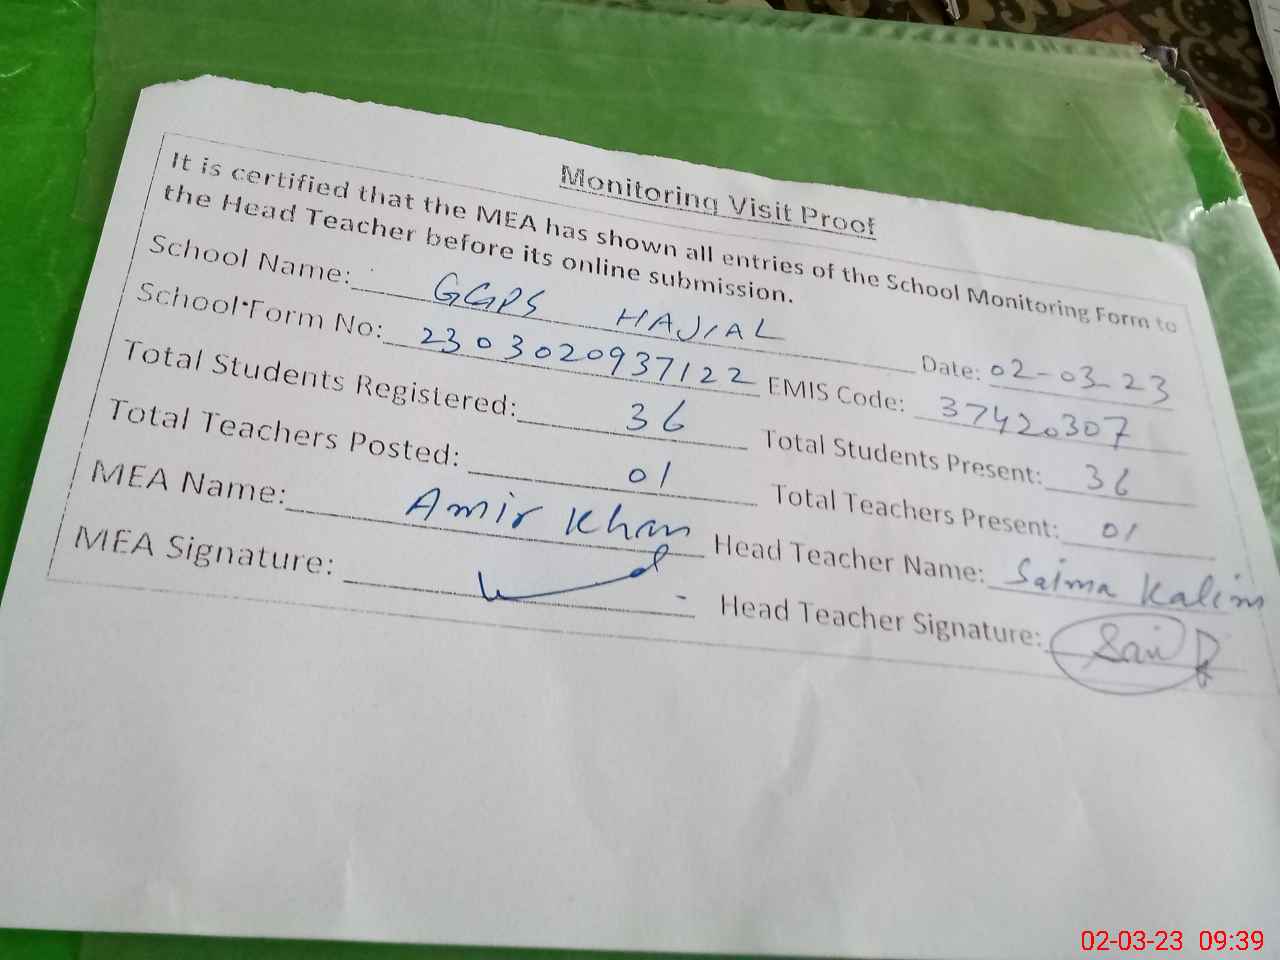 Monitoring Visit Proof
It is certified that the MEA has shown all entries of the School Monitoring Form to
the Head Teacher before its online submission.
School Name: GGPS HAJIAL Date: 02-03-23
School Form No: 2303020937122 EMIS Code: 37420307
Total Students Registered: 36 Total Students Present: 36
Total Teachers Posted: 01 Total Teachers Present: 01
MEA Name: Amir Khan Head Teacher Name: Saima Kalim
MEA Signature: Head Teacher Signature:
02-03-23 09:39